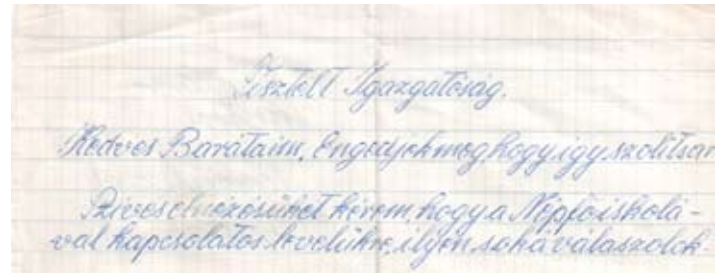 Tisztelt Igazgatóság.
Kedves Barátaim, Engedjék meg hogy így szólítsam
Szíves elnézésüket kérem hogy a Népfőiskolá-
val kapcsolatos levelükre, ilyen soká válaszolok.